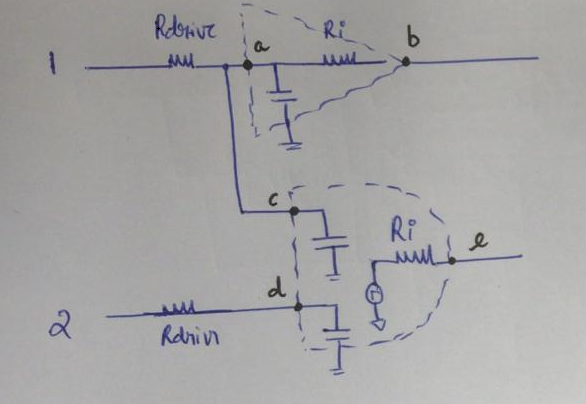 Rdrive
Ri
b
1
a
c
Ri
e
d
2
Rdriv